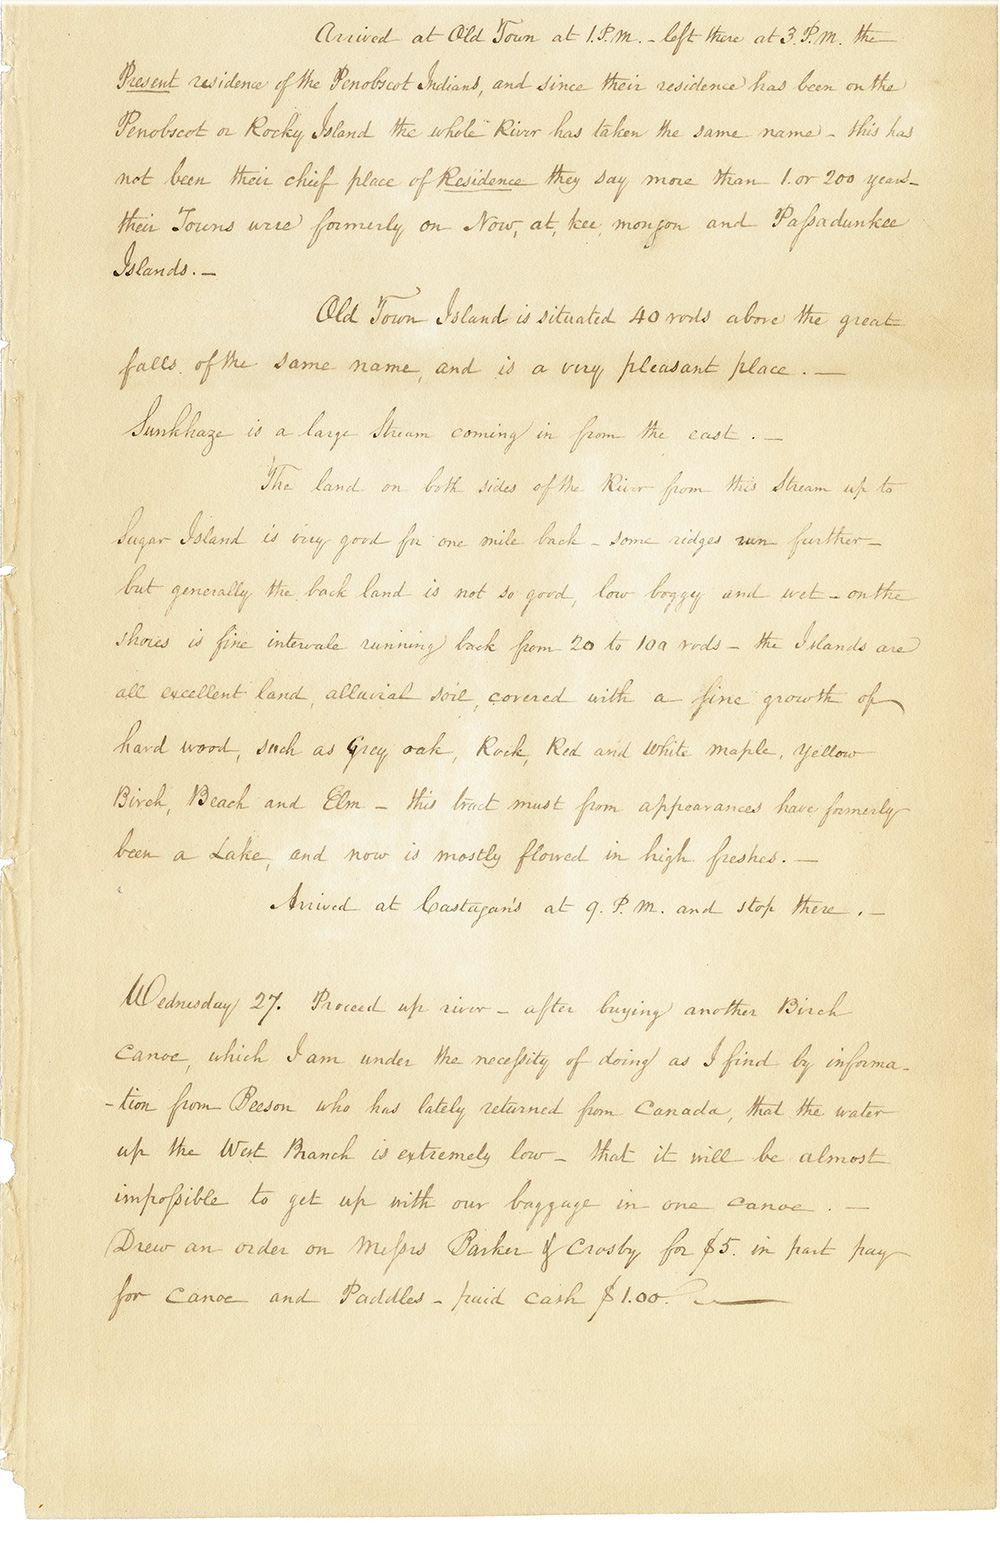 Arrived at Old Town at 1. P.M. – left there at 3. P.M. the
Present residence of the Penobscot Indians, and since their residence has been on the
Penobscot or Rocky Island the whole River has taken the same name – this has
not been their chief place of Residence they say more than 1. or 200 years –
their Towns were formerly on Now, at, kee, mongon and Paſsadunkee
Islands. –
Old Town Island is situated 40 rods above the great
falls of the same name, and is a very pleasant place. –
Sunkhaze is a large Stream coming in from the east. –
The land on both sides of the River from this Stream up to
Sugar Island is very good for one mile back – some ridges run further –
but generally the back land is not so good, low boggy and wet – on the
shores is fine intervale running back from 20 to 100 rods – the Islands are
all excellent land, alluvial soil, covered with a fine growth of
hard wood, such as Grey oak, Rock, Red and White maple, Yellow
Birch, Beach and Elm – this tract must from appearances have formerly
been a Lake, and now is mostly flowed in high freshes. –
Arrived at Castagan's at 9. P.M. and stop there. –
Wednesday 27. Proceed up river – after buying another Birch
canoe, which I am under the neceſsity of doing as I find by informa-
-tion from Beeson who has lately returned from Canada, that the water
up the West Branch is extremely low – that it will be almost
impoſsible to get up with our baggage in one canoe. –
Drew an order on Meſsrs Parker & Crosby for $5. in part pay
for canoe and Paddles – paid cash $1.00. –